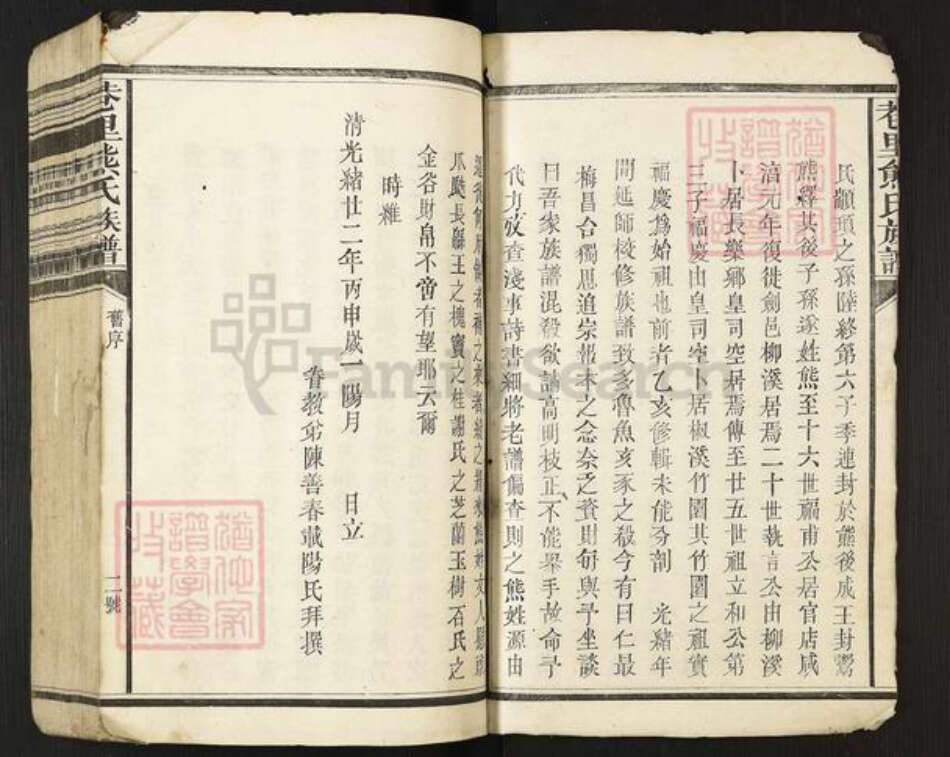 巷里熊氏族譜
氏顓頊之孫陸終第六子季連封於熊後成王封鬻
熊繹其後子孫遂姓熊至十六世福甫公居官店咸
淯元年復徙劍邑柳溪居焉二十世執言公由柳溪
卜居長樂鄉皇司空居焉傳至廿五世祖立和公第
三子福慶由皇司空卜居椒溪竹園其竹園之祖實
福慶為始祖也前者乙亥修輯未能分剖 光緒年
間延師校修族譜致多魯魚亥豕之殺今有日仁最
梅昌合獨思追宗報本之念奈乏資財每與予坐談
曰吾家族譜混殺欲謀高明枝正不能舉手故命予
代力攷查淺事詩書細將老譜偏查則之熊姓源由
爪瓞長緜王之槐竇之桂謝氏之芝蘭玉樹石氏之
金谷財帛不啻有望耶云爾
時維
清光緒廿二年丙申歲一陽月 日立
眷教弟陳善春載陽氏拜撰
巷里熊氏族譜
舊序
二號
FamilySearch